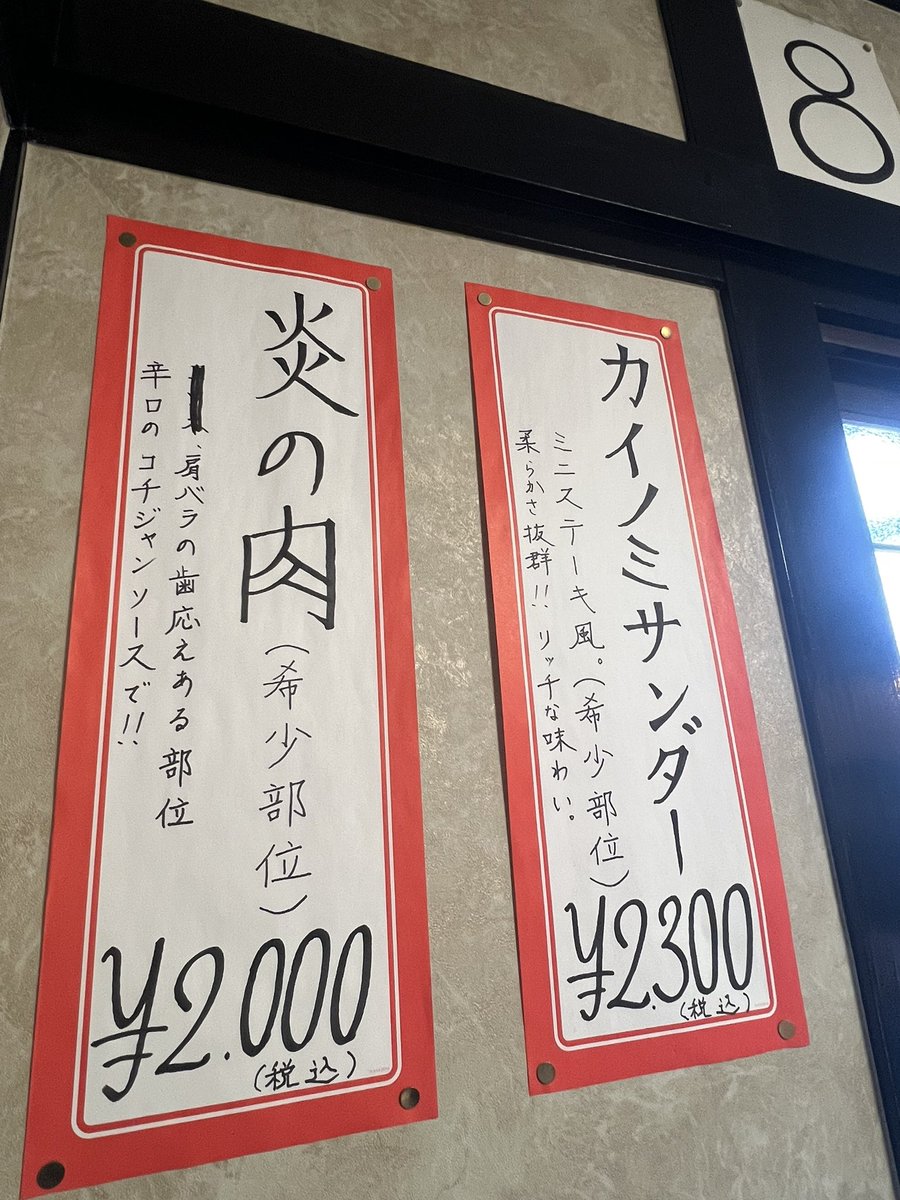 8
カイノミサンダー
ミニステーキ風。(希少部位)
柔らかさ抜群!! リッチな味わい。
¥2.300
(税込)
炎の肉
(希少部位)
、肩バラの歯応えある部位
辛口のコチジャンソースで!!
¥2.000
(税込)